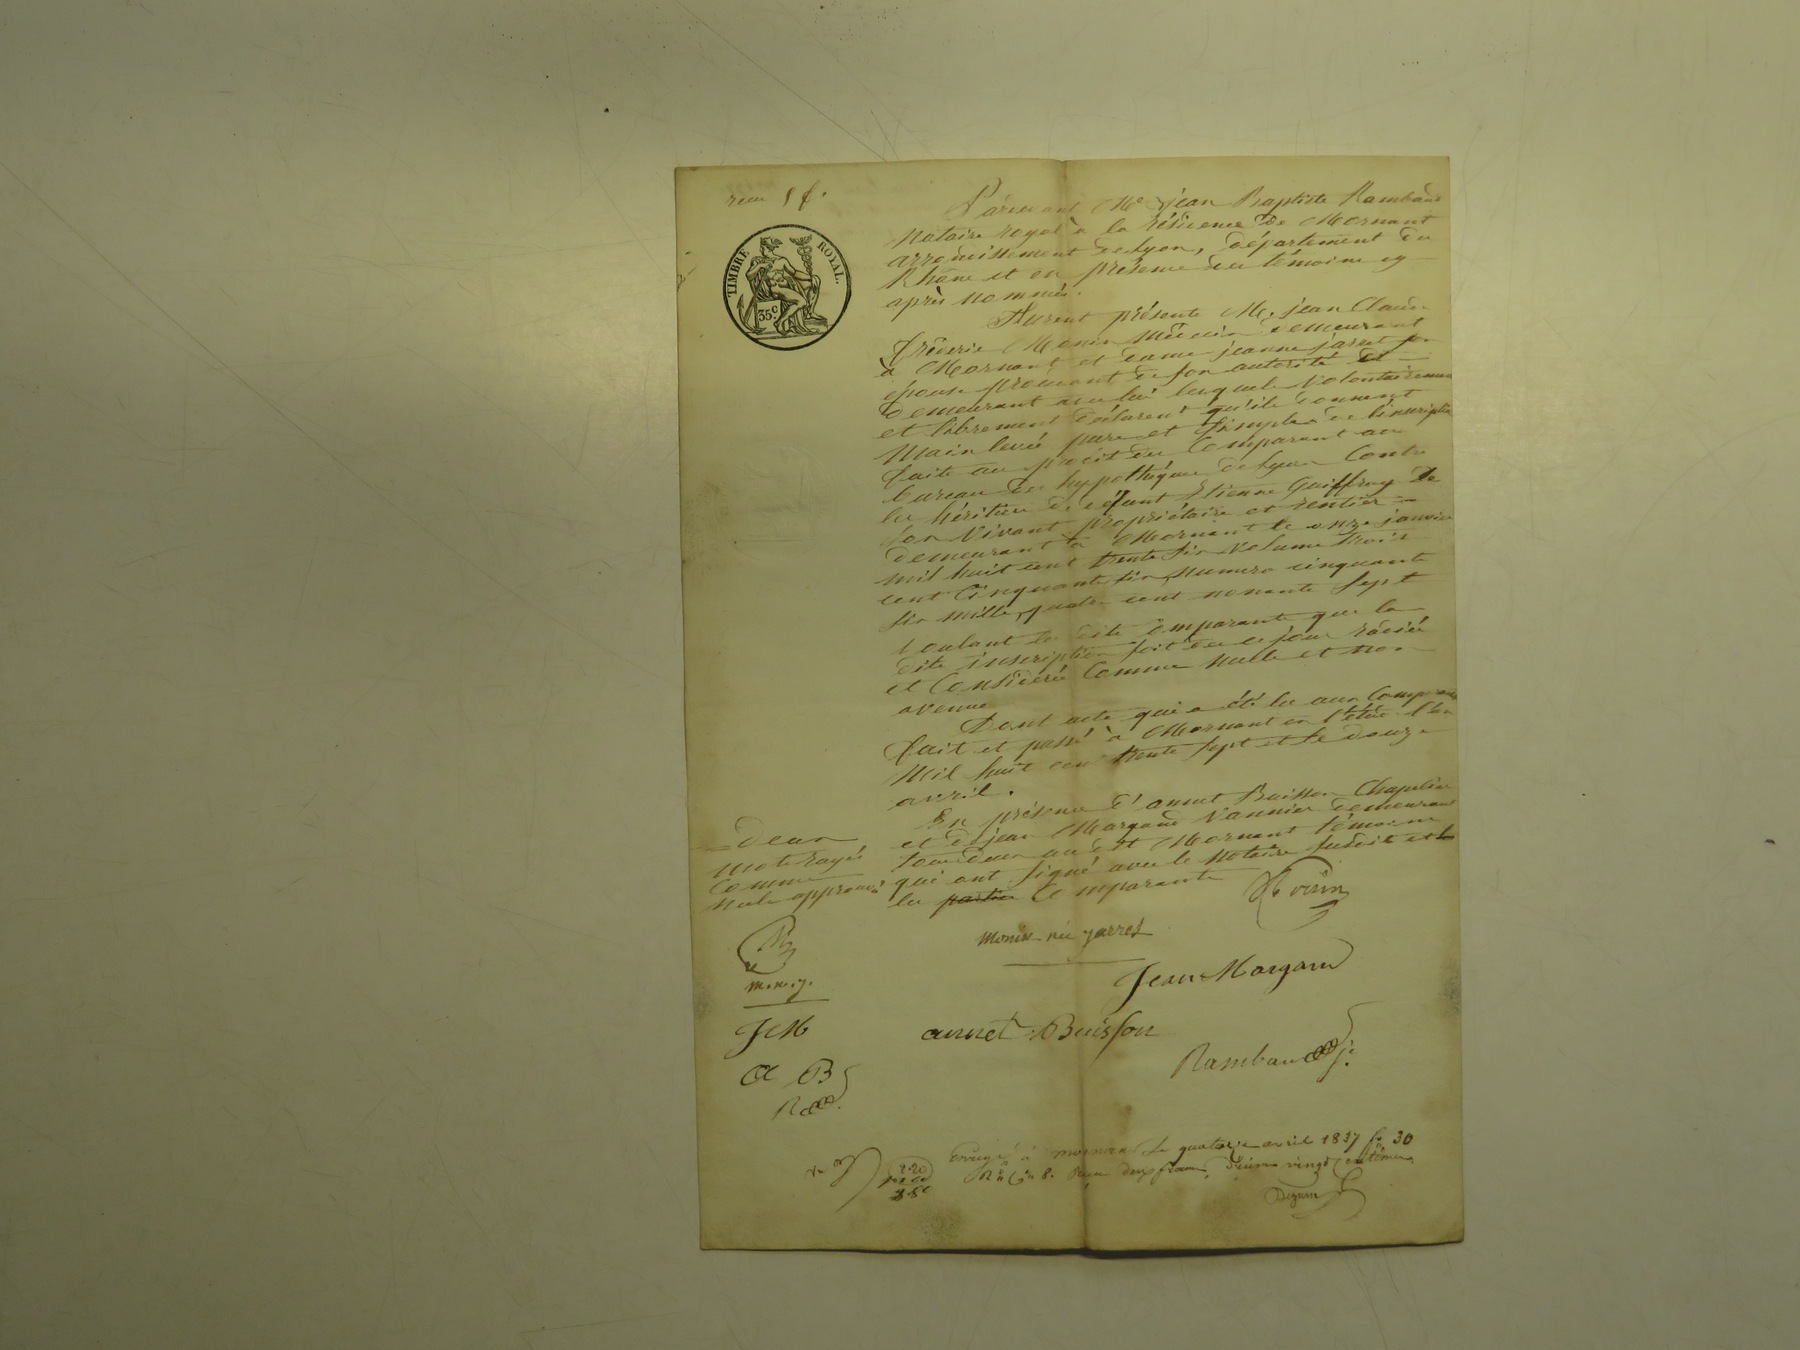 recu 5 f.
TIMBRE ROYAL.
35 c.
Pardevant Me jean Baptiste Rambaud
Notaire royal à la résidence de Mornant
arrondissement de Lyon, département du
Rhône et en présence des témoins cy
après nommés.
Furent présents M. jean Claude
Monin Médecin demeurant
à Mornant et dame jeanne jarest son
épouse procédant de son autorité et
demeurant avec lui lesquels volontairement
et librement déclarent qu'ils donnent
Main levée pure et simple de l'inscription
faite au profit des Comparants au
bureau des hypothèques de Lyon Contre
les héritiers de défunt Etienne Guiffray De
son Vivant propriétaire et rentier
demeurant à Mornant le onze janvier
mil huit cent trente six volume trois
cent Cinquante six Numéro cinquante
six mille, quatre cent nonante sept
voulant les dits Comparants que la
dite inscription soit dès ce jour radiée
et Considérée Comme nulle et non
avenue
Dont acte qui a été lu aux Comparants
fait et passé à Mornant en l'étude l'an
Mil huit cent trente sept et le douze
avril.
En présence d'annet Buisson Chapelier
et de jean Margand Vannier demeurant
tous deux au dit Mornant témoins
qui ont signé avec le Notaire susdit et
les parties Comparants
Deux
mots rayés
Comme
nuls approuvés
Monin
monin née jarrest
m.n.j.
Jean Margand
JM
annet Buisson
a B
Rambaud je.
R
Enregé à mornant le quatorze avril 1837 fo 30
Ro Ce 8. Reçu deux francs, dixième vingt centimes.
2.20